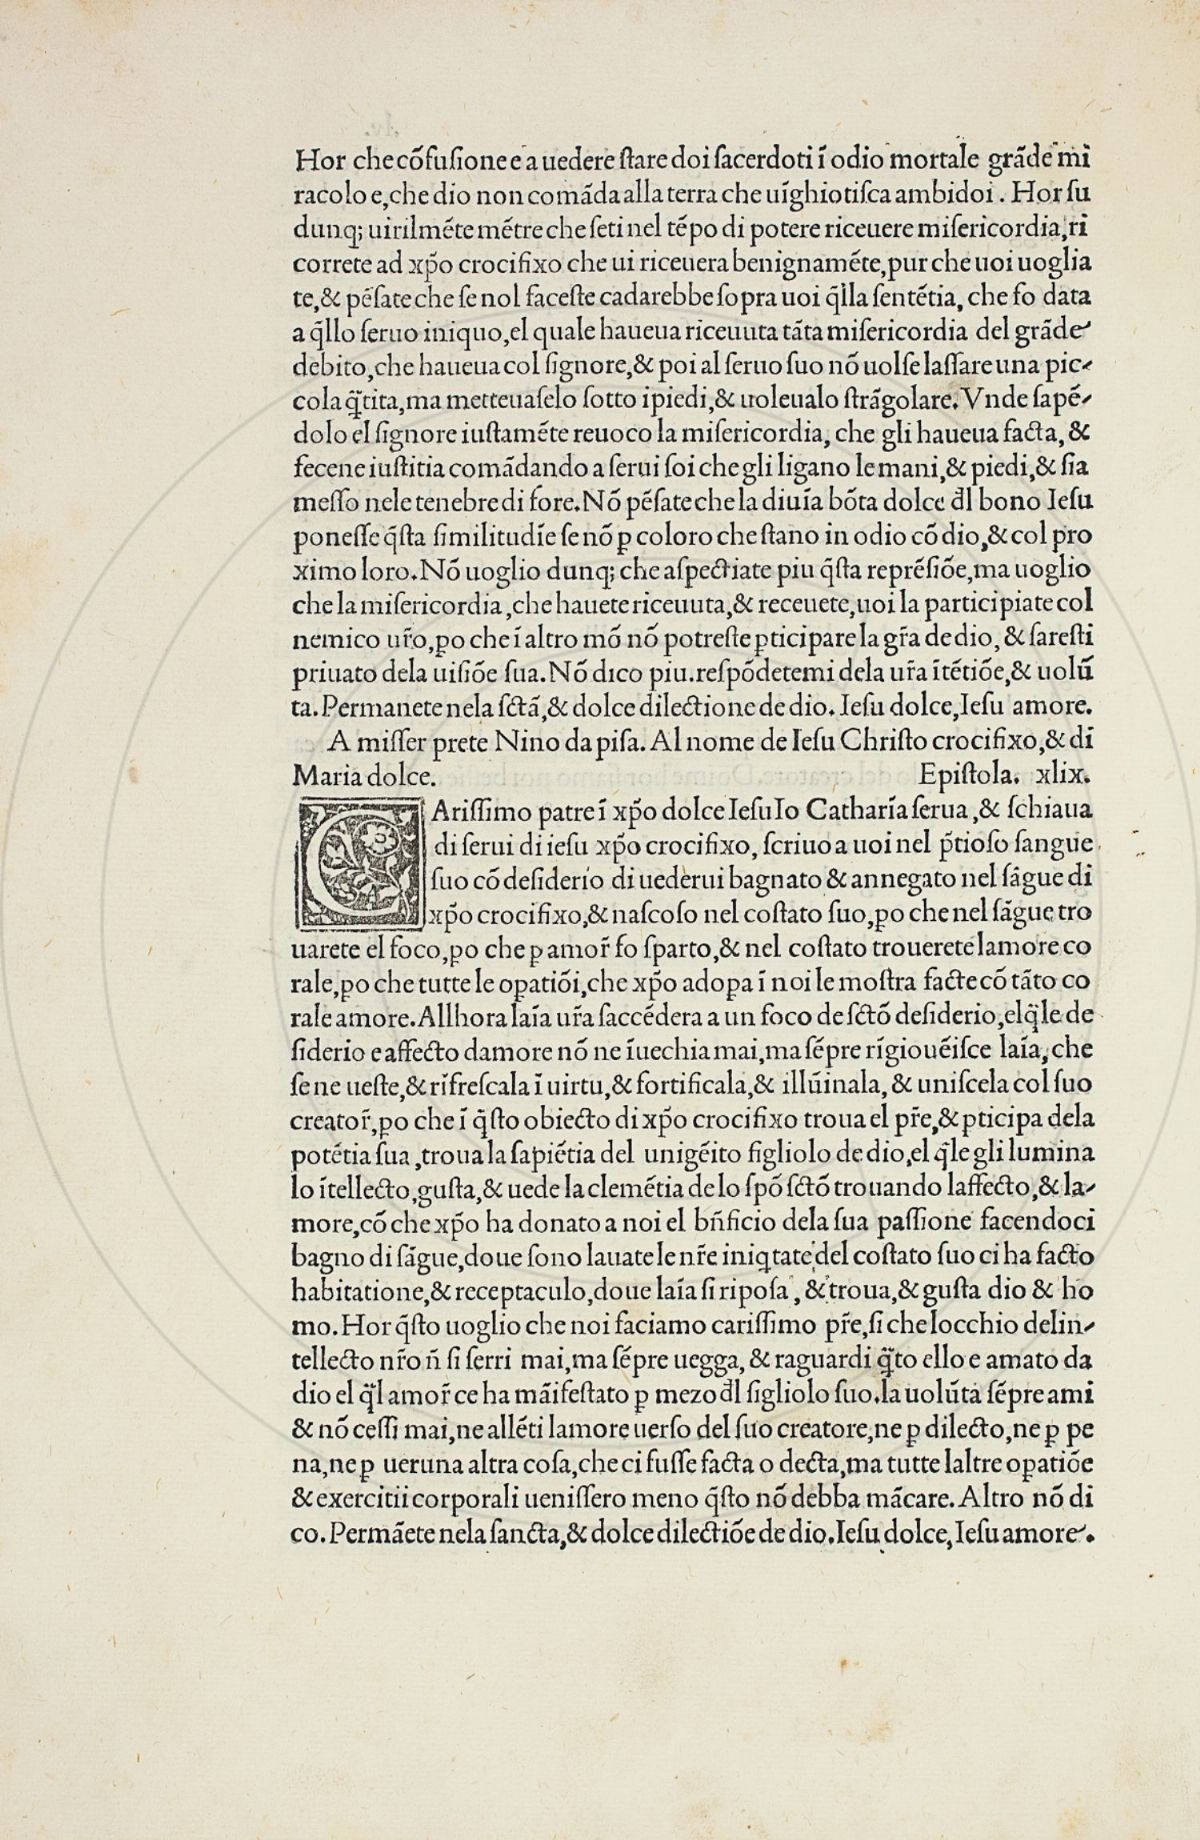 Hor che cõfuſione e a uedere ſtare doi ſacerdoti ĩ odio mortale grãde mi
racolo e, che dio non comãda alla terra che uĩghiotiſca ambidoi. Hor ſu
dunq; uirilmẽte mẽtre che ſeti nel tẽpo di potere riceuere miſericordia, ri
correte ad xp̃o crocifixo che ui riceuera benignamẽte, pur che uoi uoglia
te, & pẽſate che ſe nol faceſte cadarebbe ſopra uoi q̃lla ſentẽtia, che fo data
a q̃llo ſeruo iniquo, el quale haueua riceuuta tãta miſericordia del grãde
debito, che haueua col ſignore, & poi al ſeruo ſuo nõ uolſe laſſare una pic⸗
cola q̃tita, ma metteuaſelo ſotto i piedi, & uoleualo ſtrãgolare. Vnde ſapẽ⸗
dolo el ſignore iuſtamẽte reuoco la miſericordia, che gli haueua facta, &
fecene iuſtitia comãdando a ſerui ſoi che gli ligano le mani, & piedi, & ſia
meſſo nele tenebre di fore. Nõ pẽſate che la diuĩa bõta dolce đl bono Ieſu
poneſſe q̃ſta ſimilitudĩe ſe nõ ꝑ coloro che ſtano in odio cõ dio, & col pro
ximo loro. Nõ uoglio dunq; che aſpectiate piu q̃ſta reprẽſiõe, ma uoglio
che la miſericordia, che hauete riceuuta, & receuete, uoi la participiate col
nemico ur̃o, ꝑo che ĩ altro mõ nõ potreſte ꝑticipare la gr̃a de dio, & ſareſti
priuato dela uiſiõe ſua. Nõ dico piu. reſpõdetemi dela ur̃a ĩtẽtiõe, & uolũ
ta. Permanete nela ſctã, & dolce dilectione de dio. Ieſu dolce, Ieſu amore.
A miſſer prete Nino da piſa. Al nome de Ieſu Chriſto crocifixo, & di
Maria dolce. Epiſtola. xlix.
CAriſſimo patre ĩ xp̃o dolce Ieſu Io Catharĩa ſerua, & ſchiaua
di ſerui di ieſu xp̃o crocifixo, ſcriuo a uoi nel p̃tioſo ſangue
ſuo cõ deſiderio di uederui bagnato & annegato nel ſãgue di
xp̃o crocifixo, & naſcoſo nel coſtato ſuo, ꝑo che nel ſãgue tro
uarete el foco, ꝑo che ꝑ amor̃ fo ſparto, & nel coſtato trouerete lamore co
rale, ꝑo che tutte le oꝑatiõi, che xp̃o adoꝑa ĩ noi le moſtra facte cõ tãto co
rale amore. Allhora laĩa ur̃a ſaccẽdera a un foco de ſctõ deſiderio, el q̃le de
ſiderio e affecto damore nõ ne ĩuechia mai, ma ſẽpre rĩgiouẽiſce laĩa, che
ſe ne ueſte, & rĩfreſcala ĩ uirtu, & fortificala, & illũinala, & uniſcela col ſuo
creator̃, ꝑo che ĩ q̃ſto obiecto di xp̃o crocifixo troua el pr̃e, & ꝑticipa dela
potẽtia ſua, troua la ſapiẽtia del unigẽito figliolo de dio, el q̃le gli lumina
lo ĩtellecto, guſta, & uede la clemẽtia de lo ſpõ ſctõ trouando laffecto, & la⸗
more, cõ che xp̃o ha donato a noi el bñficio dela ſua paſſione facendoci
bagno di ſãgue, doue ſono lauate le nr̃e iniqtate, del coſtato ſuo ci ha facto
habitatione, & receptaculo, doue laĩa ſi ripoſa, & troua, & guſta dio & ho
mo. Hor q̃ſto uoglio che noi faciamo cariſſimo pr̃e, ſi che locchio delin⸗
tellecto nr̃o ñ ſi ſerri mai, ma ſẽpre uegga, & raguardi q̃to ello e amato da
dio el q̃l amor̃ ce ha mãifeſtato ꝑ mezo đl figliolo ſuo. la uolũta ſẽpre ami
& nõ ceſſi mai, ne allẽti lamore uerſo del ſuo creatore, ne ꝑ dilecto, ne ꝑ pe
na, ne ꝑ ueruna altra coſa, che ci fuſſe facta o decta, ma tutte laltre oꝑatiõe
& exercitii corporali ueniſſero meno q̃ſto nõ debba mãcare. Altro nõ di
co. Permãete nela ſancta, & dolce dilectiõe de dio. Ieſu dolce, Ieſu amore.